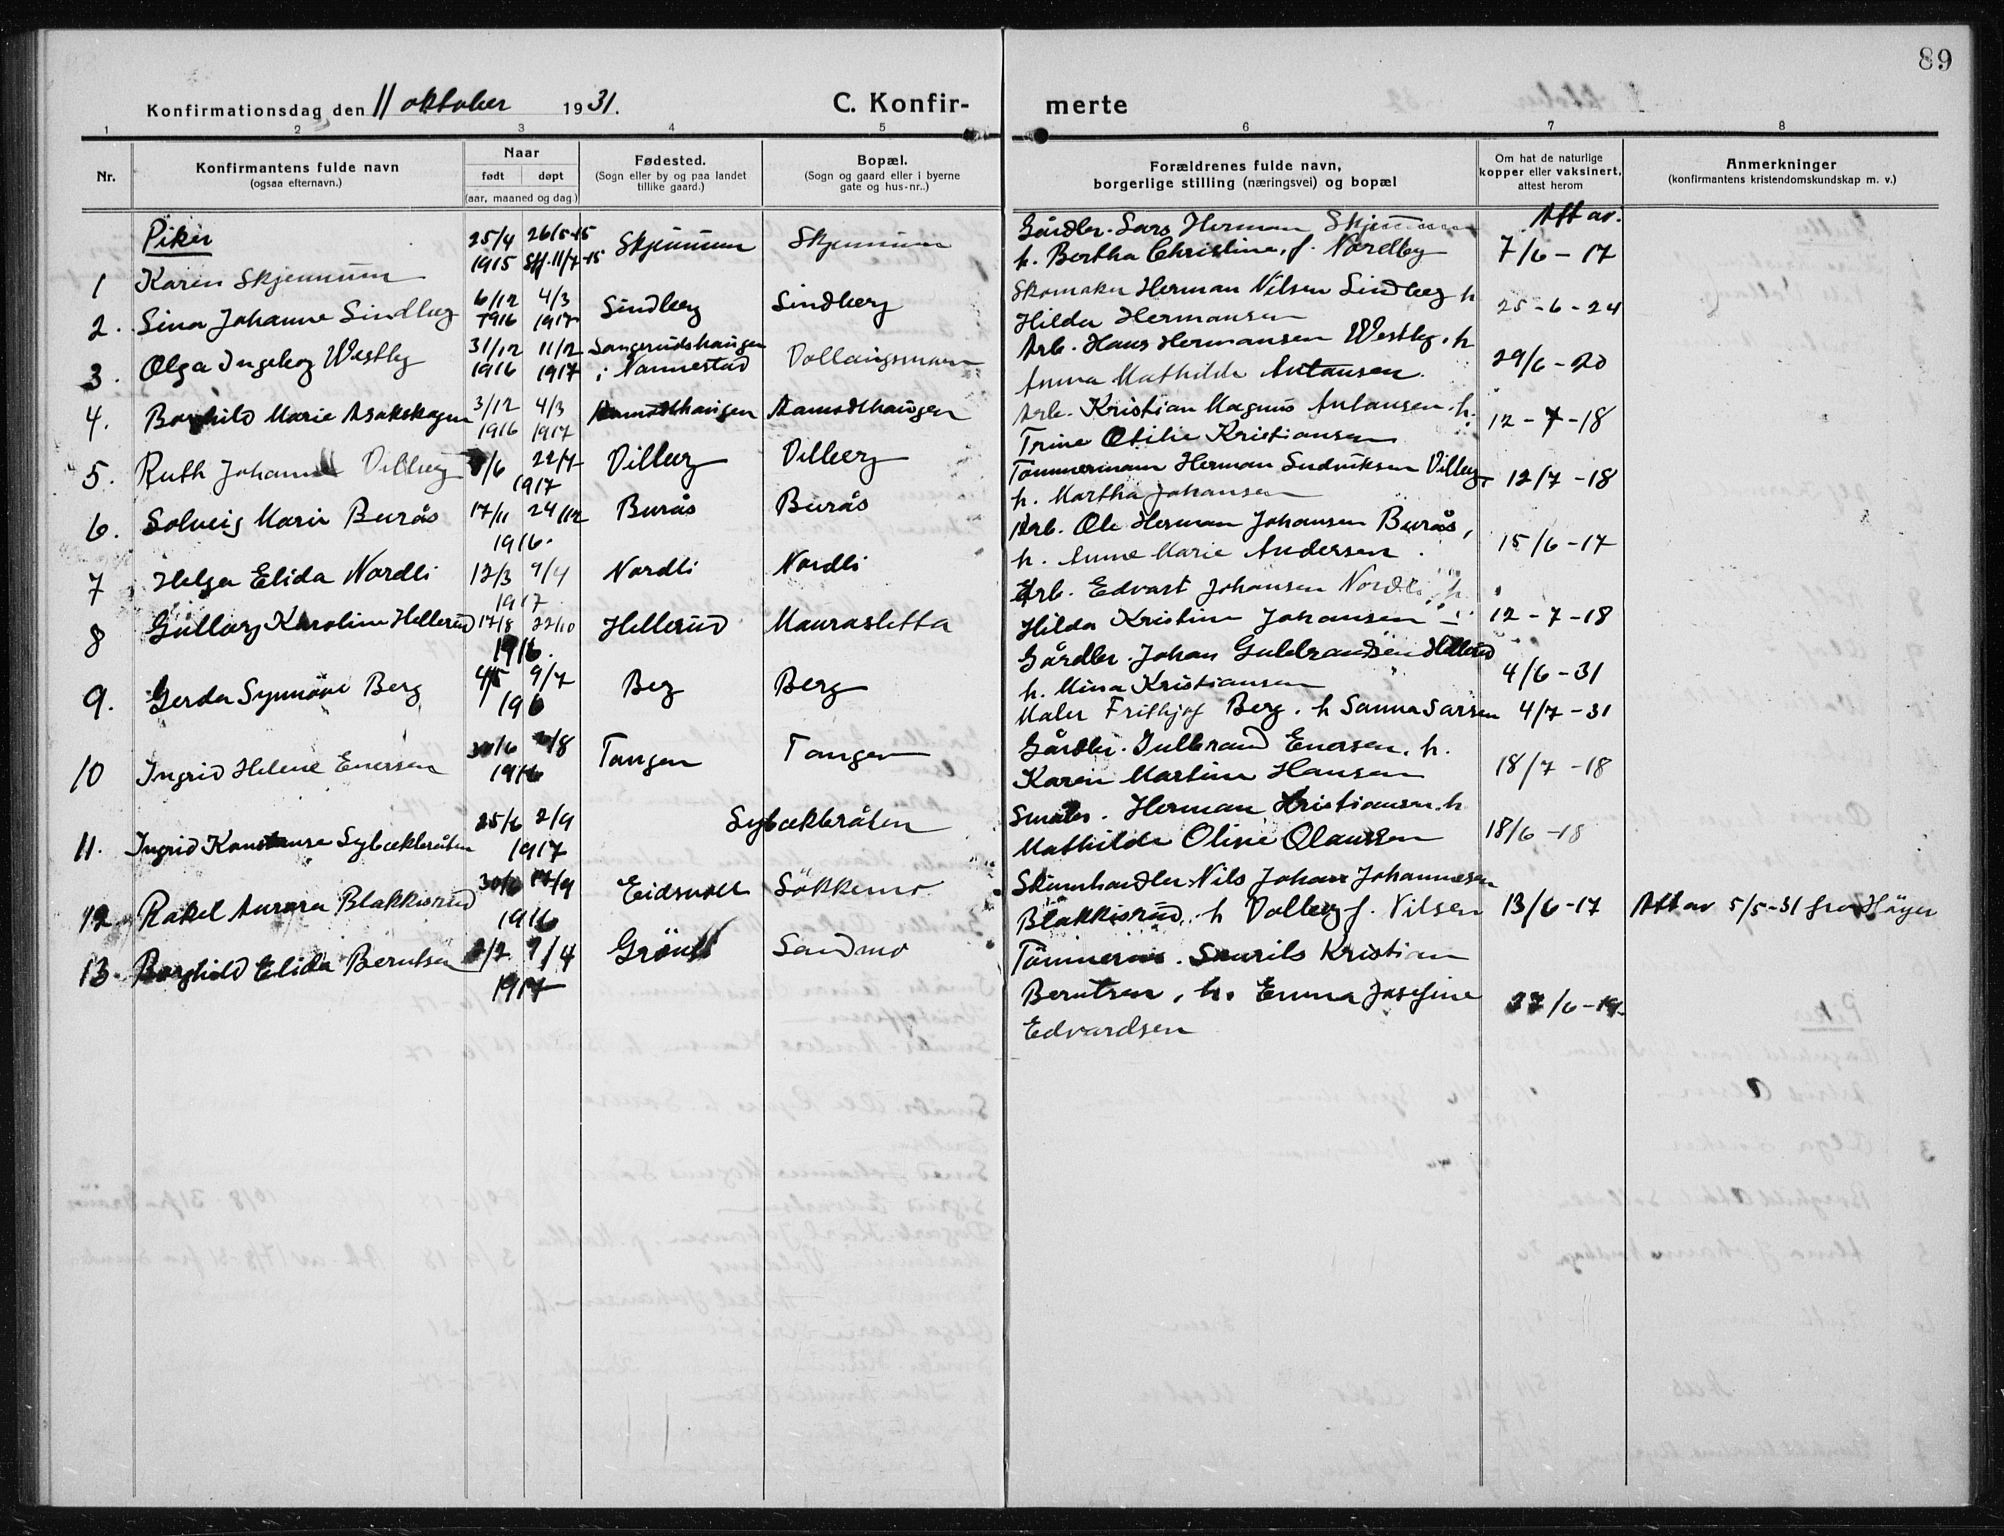 89
Konfirmationsdag den 11 oktober 1931. C. Konfir- merte
1 2 3 4 5 6 7 8
Nr. Konfirmantens fulde navn (ogsaa efternavn.) Naar født døpt (aar, maaned og dag.) Fødested. (Sogn eller by og paa landet tillike gaard.) Bopæl. (Sogn og gaard eller i byerne gate og hus-nr..) Forældrenes fulde navn, borgerlige stilling (næringsvei) og bopæl Om hat de naturlige kopper eller vaksinert, attest herom Anmerkninger (konfirmantens kristendomskundskap m. v.)
Piker
1 Karen Skjennum 25/4 1915 26/5-15 Stf. 11/7-15 Skjennum Skjennum Gårdbr. Lars Herman Skjennum
h. Bertha Christine, f. Nordby Att av. 7/6 - 17
2. Lina Johanne Lindberg 6/12 1916 4/3 1917 Lindberg Lindberg Skomaker Herman Nilsen Lindberg h
Hilda Hermansen 25-6-24
3. Olga Ingeborg Westby 31/12 1916 11/2 1917 Langerudshaugen i Nannestad Vollaugsmoen Arb. Hans Hermansen Westby. h
Anna Mathilde Antausen. 29/6-20
4. Borghild Marie Asakskogen 3/12 1916 4/3 1917 Aamodthaugen Aamodthaugen Arb. Kristian Magnus Antausen. h.
Trine Otilie Kristiansen 12-7-18
5. Ruth Johanne Vilberg /6 22/7 1917 Vilberg Vilberg Tömmermann Herman Ludviksen Vilberg
h. Martha Johansen 12/7-18
6. Solveig Marie Burås 17/11 24/12 1916. Burås Burås Arb. Ole Herman Johansen Burås,
h. Anne Marie Andersen. 15/6-17
7 Helga Elida Nordli 12/3 9/4 1917 Nordli Nordli Arb. Edvart Johansen Nordli, h.
Hilda Kristine Johansen 12-7-18
8 Gullaug Karoline Hellerud 17/8 22/10 1916. Hellerud Maurasletta Gårdbr. Johan Gulbrandsen Hellerud
h. Mina Kristiansen 4/6-31
9. Gerda Synnöve Berg 4/5 9/7 1916 Berg Berg Maler Frithjof Berg. h Sanna Larsen 4/7-31
10 Ingrid Helene Enersen 30/6 /8 1916 Tangen Tangen Gårdbr. Gulbrand Enersen. h.
Karen Martine Hansen 18/7-18
11. Ingrid Konstanse Sybækbråten 25/6 2/9 1917 Sybækbråten Småbr. Herman Kristiansen. h
Mathilde Oline Olaussen 18/6-18
12. Rakel Aurora Blakkisrud 30/6 17/9 1916 Eidsvoll Sökkemo Skinnhandler Nils Johan Johannesen
Blakkisrud. h Valborg f. Nilsen 13/6-17 Att av 5/5-31 fra Höyer
13. Borghild Elida Berntsen 2/2 9/4 1917 Grönli Sandmo Tömmerm. Laurits Kristian
Berntsen, h. Emma Josefine
Edvardsen 27/6-19.